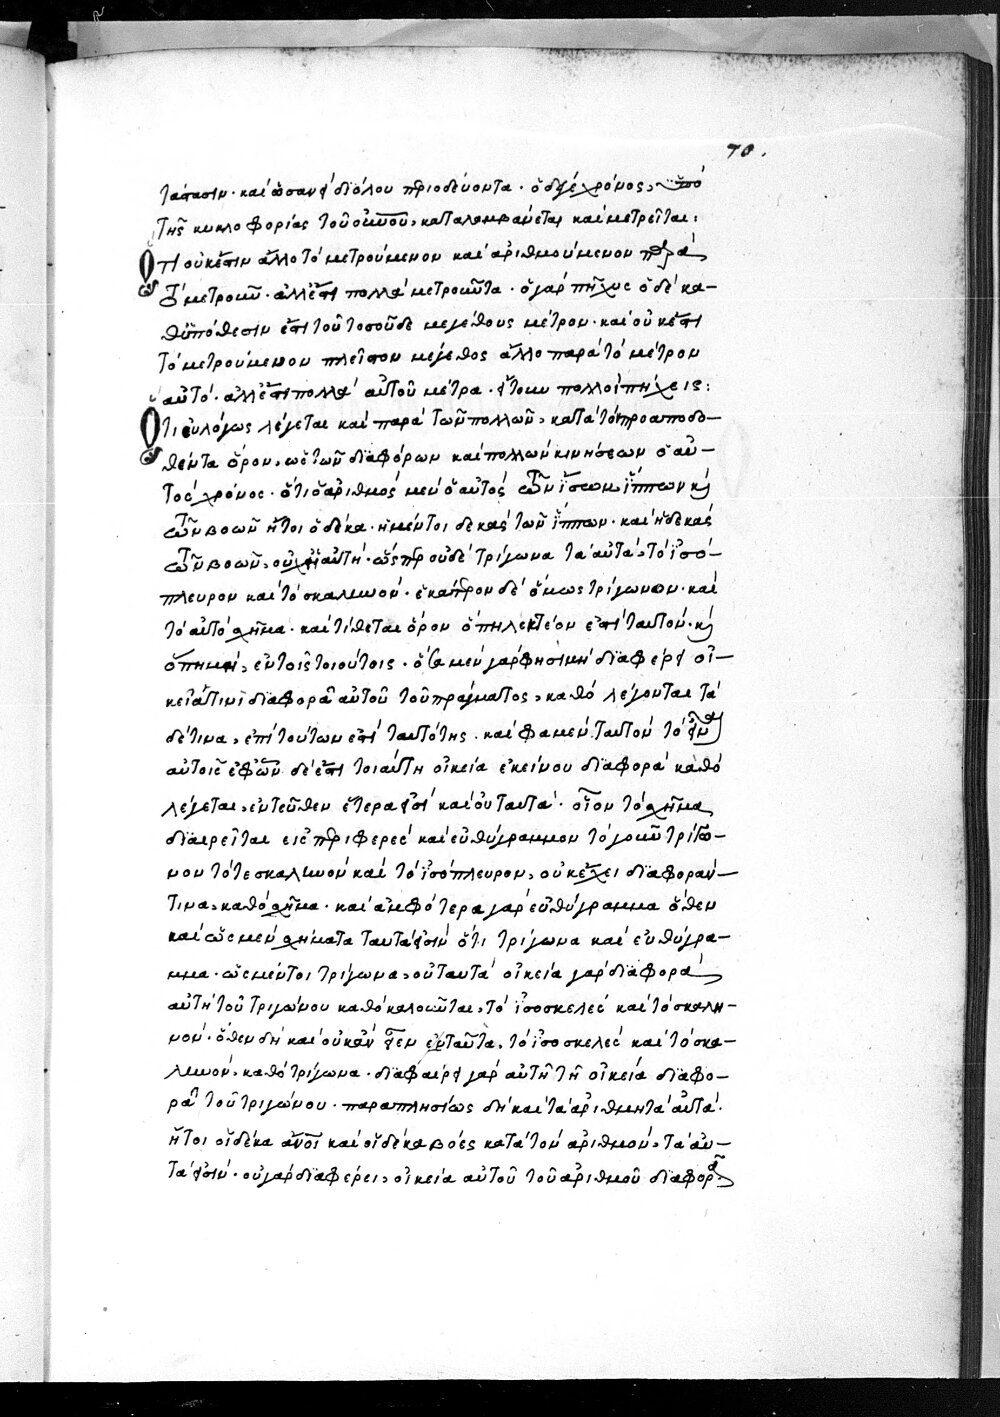 70.
τάστασιν· καὶ ὡσανεὶ διόλου περιοδεύοντα· ὁ δέ γε χρόνος, ὑπὸ
τῆς κυκλοφορίας τοῦ οὐνοῦ, καταλαμβάνεται καὶ μετρεῖται:
Ὅτι οὐκ ἔστιν ἄλλο τὸ μετρούμενον καὶ ἀριθμούμενον παρὰ
τὸ μετροῦν· ἀλλ' ἔστι πολλὰ μετροῦντα· ὁ γὰρ πῆχυς ὁ δὲ κα-
θ' ὑπόθεσιν ἐστὶ τοῦ τοσοῦδε μεγέθους μέτρον· καὶ οὐκ ἔστι
τὸ μετρούμενον πλεῖστον μέγεθος ἄλλο παρὰ τὸ μέτρον
αὐτό· ἀλλ' ἔστι πολλὰ αὐτοῦ μέτρα· ἤτοι πολλοὶ πήχεις:
Ὅτι εὐλόγως λέγεται καὶ παρὰ τῶν πολλῶν, κατὰ τὸν προαποδο-
θέντα ὅρον, ὡς τῶν διαφόρων καὶ πολλῶν κινήσεων ὁ αὐ-
τὸς χρόνος· ὅτι ὁ ἀριθμὸς μὲν ὁ αὐτὸς τῶν ἴσων ἵππων κὶ
τῶν βοῶν ἤτοι ὁ δέκα· ἡ μέντοι δεκὰς τῶν ἵππων· καὶ ἡ δεκὰς
τῶν βοῶν, οὐχ ἡ αὐτή· ὥσπερ οὐδὲ τρίγωνα τὰ αὐτὰ, τὸ ἰσό-
πλευρον καὶ τὸ σκαληνόν· ἑκάτερον δὲ ὅμως τρίγωνον· καὶ
τὸ αὐτὸ σχῆμα· καὶ τίθεται ὅρον ὅπη λεκτέον ἐπὶ ταυτόν· κὶ
ὅπη μὴ, ἐν τοῖς τοιούτοις· ὅσα μὲν γάρ φησι μὴ διαφέρει οἰ-
κείᾳ τινὶ διαφορᾷ αὐτοῦ τοῦ πράγματος, καθὸ λέγονται τά
δέ τινα, ἐπὶ τούτων ἐστὶ ταυτότης· καὶ φαμὲν ταυτὸν τὸ ἐν
αὐτοῖς ἐφ' ὧν δὲ ἐστὶ τοιαύτη οἰκεία ἐκείνου διαφορὰ καθὸ
λέγεται, ἐντεῦθεν ἕτερα εἰσὶ καὶ οὐ ταυτά· οἷον τὸ σχῆμα
διαιρεῖται εἰς περιφερὲς καὶ εὐθύγραμμον τὸ γοῦν τρίγω-
νον τό τε σκαληνὸν καὶ τὸ ἰσόπλευρον, οὐκ ἔχει διαφοράν
τινα, καθὸ σχῆμα· καὶ ἀμφότερα γὰρ εὐθύγραμμα ὅθεν
καὶ ὡς μὲν σχήματα ταυτά εἰσιν ὅτι τρίγωνα καὶ εὐθύγρα-
μμα· ὡς μέντοι τρίγωνα, οὐ ταυτά οἰκεία γὰρ διαφορά
αὕτη τοῦ τριγώνου καθὸ καλοῦνται, τὸ ἰσοσκελὲς καὶ τὸ σκαλη-
νόν· ὅθεν δὴ καὶ οὐκ ἂν εἶεν ταῦτα, τὸ ἰσοσκελὲς καὶ τὸ σκα-
ληνόν, καθὸ τρίγωνα· διαφέρει γὰρ αὐτῇ τῇ οἰκείᾳ διαφο-
ρᾷ τοῦ τριγώνου· παραπλησίως δὴ καὶ τὰ ἀριθμητὰ αὐτά·
ἤτοι οἱ δέκα ἄνοι καὶ οἱ δέκα βόες κατὰ τὸν ἀριθμόν, τὰ αὐ-
τά εἰσιν· οὐ γὰρ διαφέρει, οἰκεία αὐτοῦ τοῦ ἀριθμοῦ διαφορᾷ